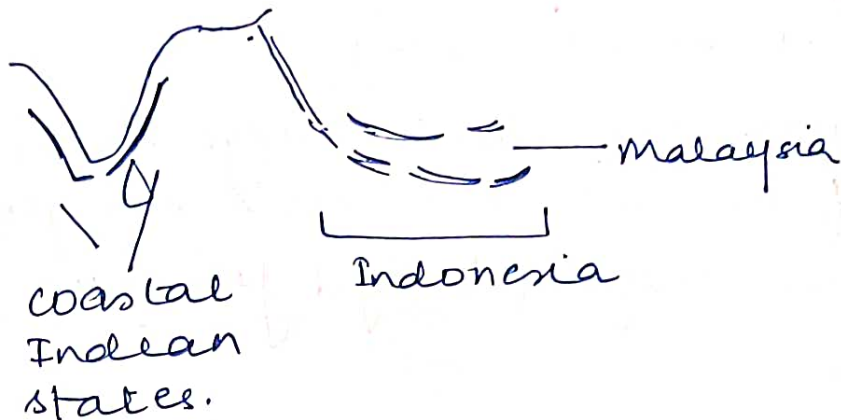 Malaysia
Indonesia
coastal
Indian
states.